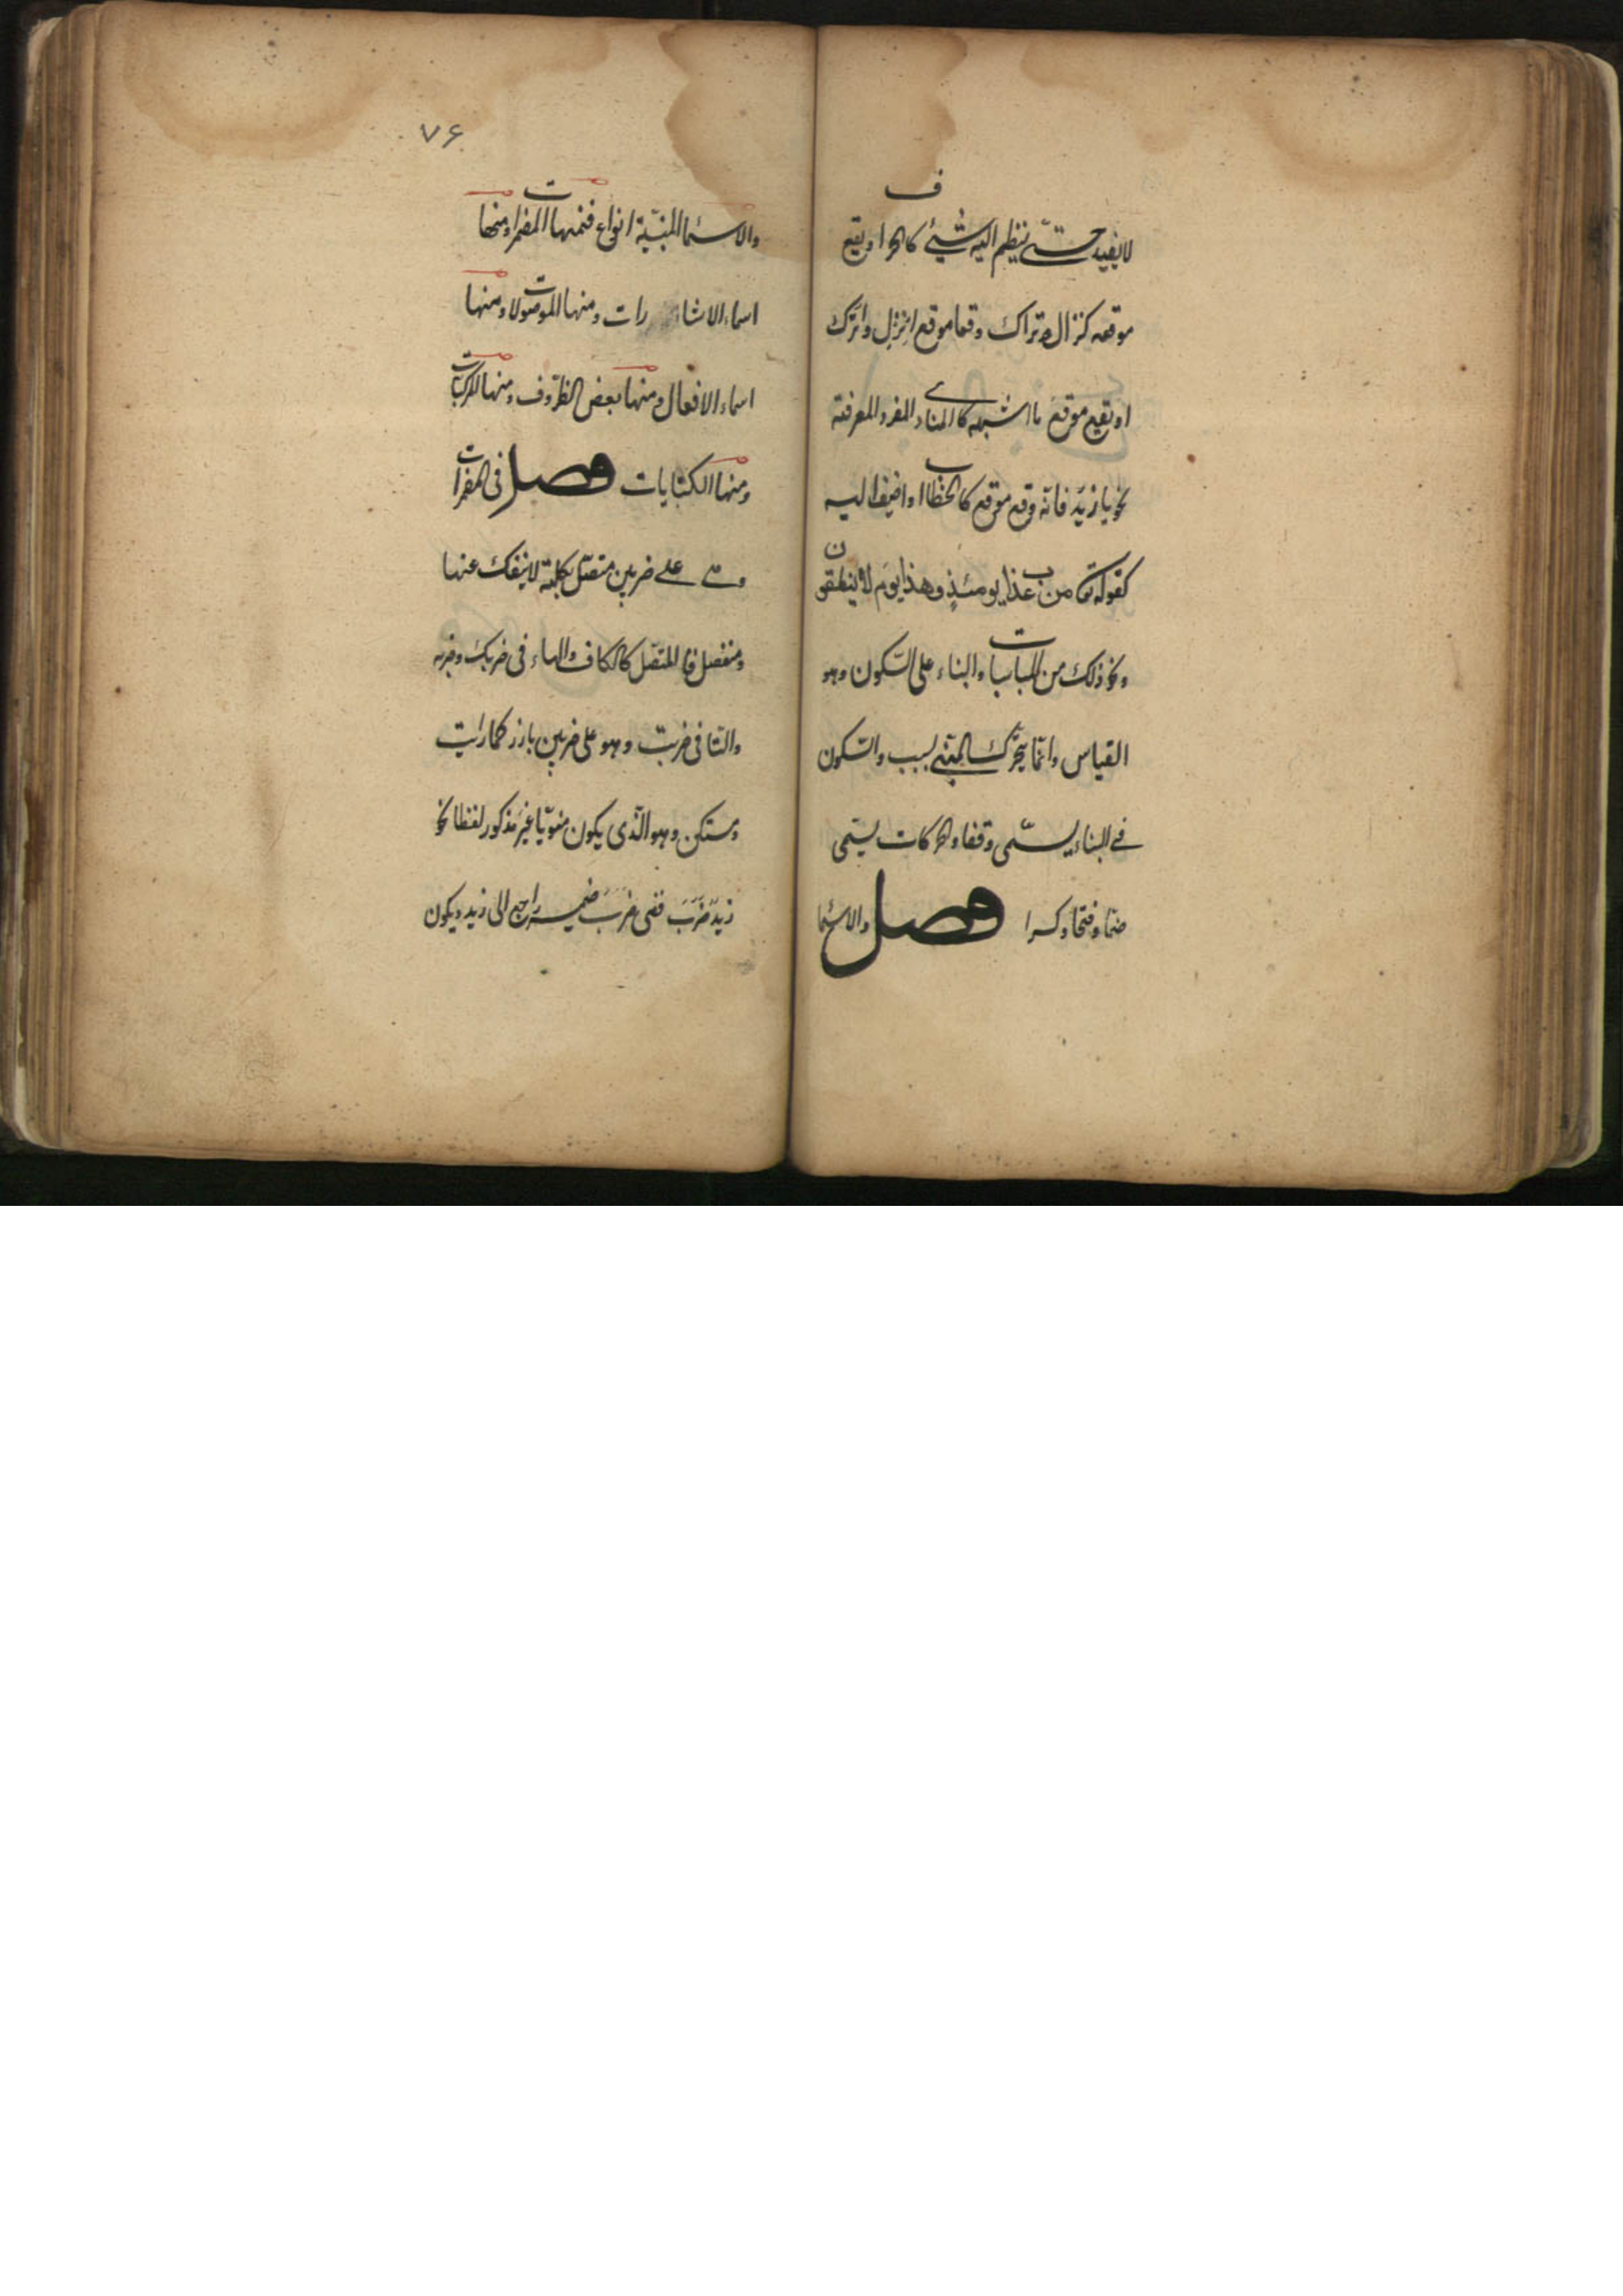 لايفيد حتّى ينظم اليه شيئ كالحرف او يقع
موقعه كنزال وتراك وقعا موقع انزل واترك
او يقع موقع ما اشبهه كالمنادى المفرد المعرفة
نحو يا زيد فانّه وقع موقع كاف الخطاب او اضيف اليه
كقوله تعا من عذاب يومئذٍ وهذا يوم لا ينطقون
ونحو ذلك من المناسبات والبناء على السّكون وهو
القياس وانّما يتحرّك المبنى لسبب والسّكون
فى البناء يسمّى وقفا والحركات يسمّى
ضمّا وفتحا وكسرا فصل والاسما
۷۶
والاسما المبنيّة انواع فمنها المضمرات ومنها
اسماء الاشارات ومنها الموصولات ومنها
اسماء الافعال ومنها بعض الظروف ومنها المركبات
ومنها الكنايات فصل فى المضمرات
وهى على ضربين متصّل بكلمة لاينفك عنها
ومنفصل فالمتصّل كالكاف والهاء فى ضربك وضربه
والتا فى ضربت وهو على ضربين بارز كما رايت
ومستكن وهو الّذى يكون منويّا غير مذكور لفظا نحو
زيدٌ ضَرَبَ ففى ضربَ ضمير راجع الى زيد ويكون